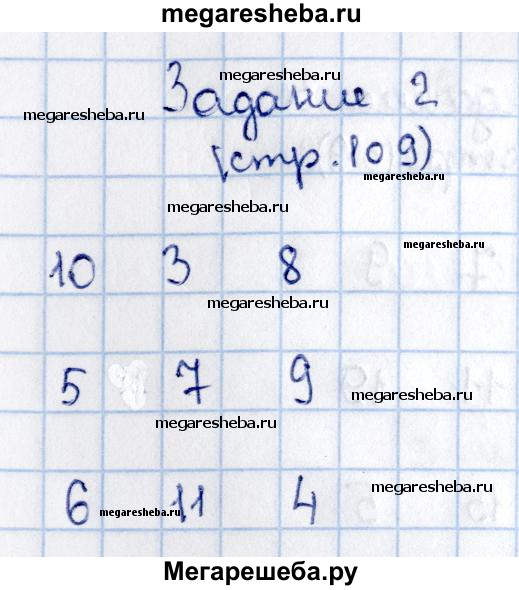 megaresheba.ru
Задание 2
megaresheba.ru
megaresheba.ru
(стр. 109)
megaresheba.ru
megaresheba.ru
megaresheba.ru
10 3 8
megaresheba.ru
5 7 9
megaresheba.ru
megaresheba.ru
6 11 4
megaresheba.ru
megaresheba.ru
Мегарешеба.ру